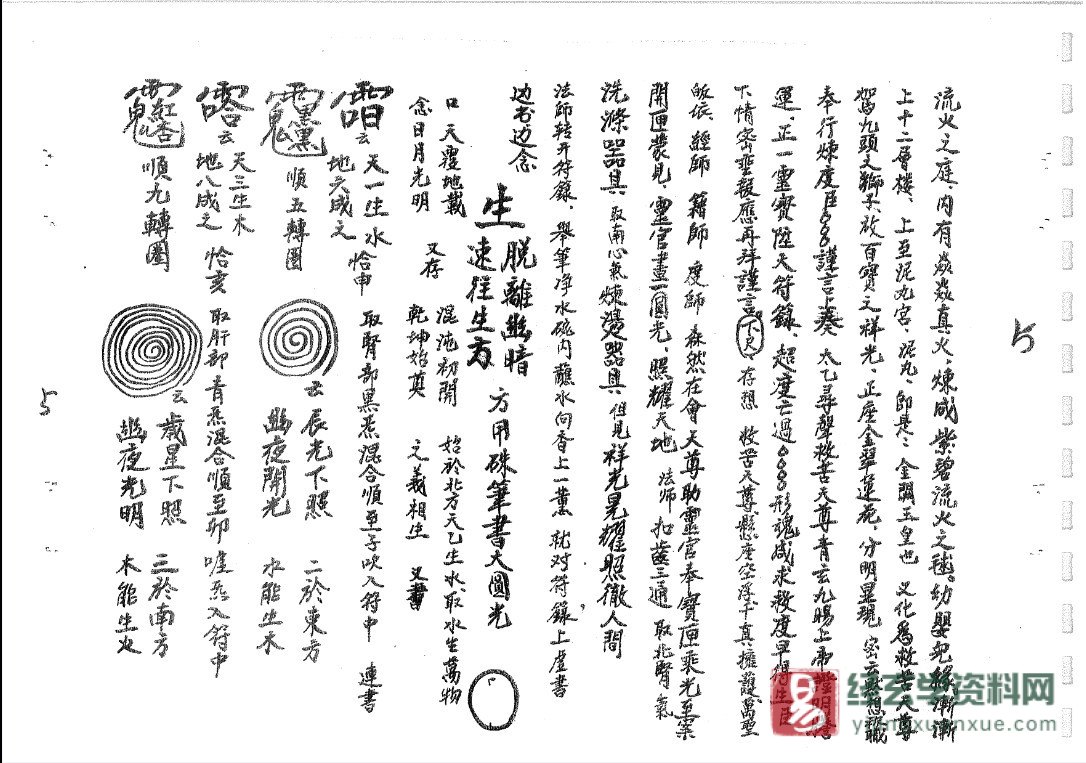 流火之庭、内有焱焱真火、煉成紫碧流火之毬。幼嬰兒緣漸漸
上十二層樓、上至泥丸宮、泥丸、即是、金闕玉皇也 又化為救苦天尊
駕九頭之獅子放百寶之祥光、正座金翠蓮花、分明显現 密云
奉行煉度臣 謹言上奏 太乙尋聲救苦天尊青玄九陽上帝證明
運、正一靈寶陞天符籙、超度亡過 形魂咸求救度早得生 臣
下情 應再拜謹言 下尺 存想 救苦天尊懸座空浮千真擁護萬聖
皈依、經師 籍師 度師 森然在會 天尊助靈官奉寶匣乘光至案
開匣蒙見、靈官畫一圓光、照耀天地 法師 扣齒三通 取北腎氣
洗滌器具 取南心氣煉燙器具 但見祥光晃耀照徹人間
法師转开符籙、舉筆净水碗内蘸水向香上一薰 就对符籙上虚書
边书边念
生
脱離幽暗
速往生方
方用硃筆書大圓光
口 天覆地載
念日月光明
又存
混沌初開
乾坤始奠
始於北方天乙生水、取水生萬物
之義相生 又書
云 天一生水
地六成之
恰申
取腎部黑炁混合順至子吹入符中 連書
順五轉圈
云 辰光下照
幽夜開光
二於東方
水能生木
云 天三生木
地八成之
恰亥
取肝部青炁混合順至卯 噓炁入符中
順九轉圈
云 歲星下照
幽夜光明
三於南方
木能生火
5
5
易
经玄学资料网
yixuanxue.com